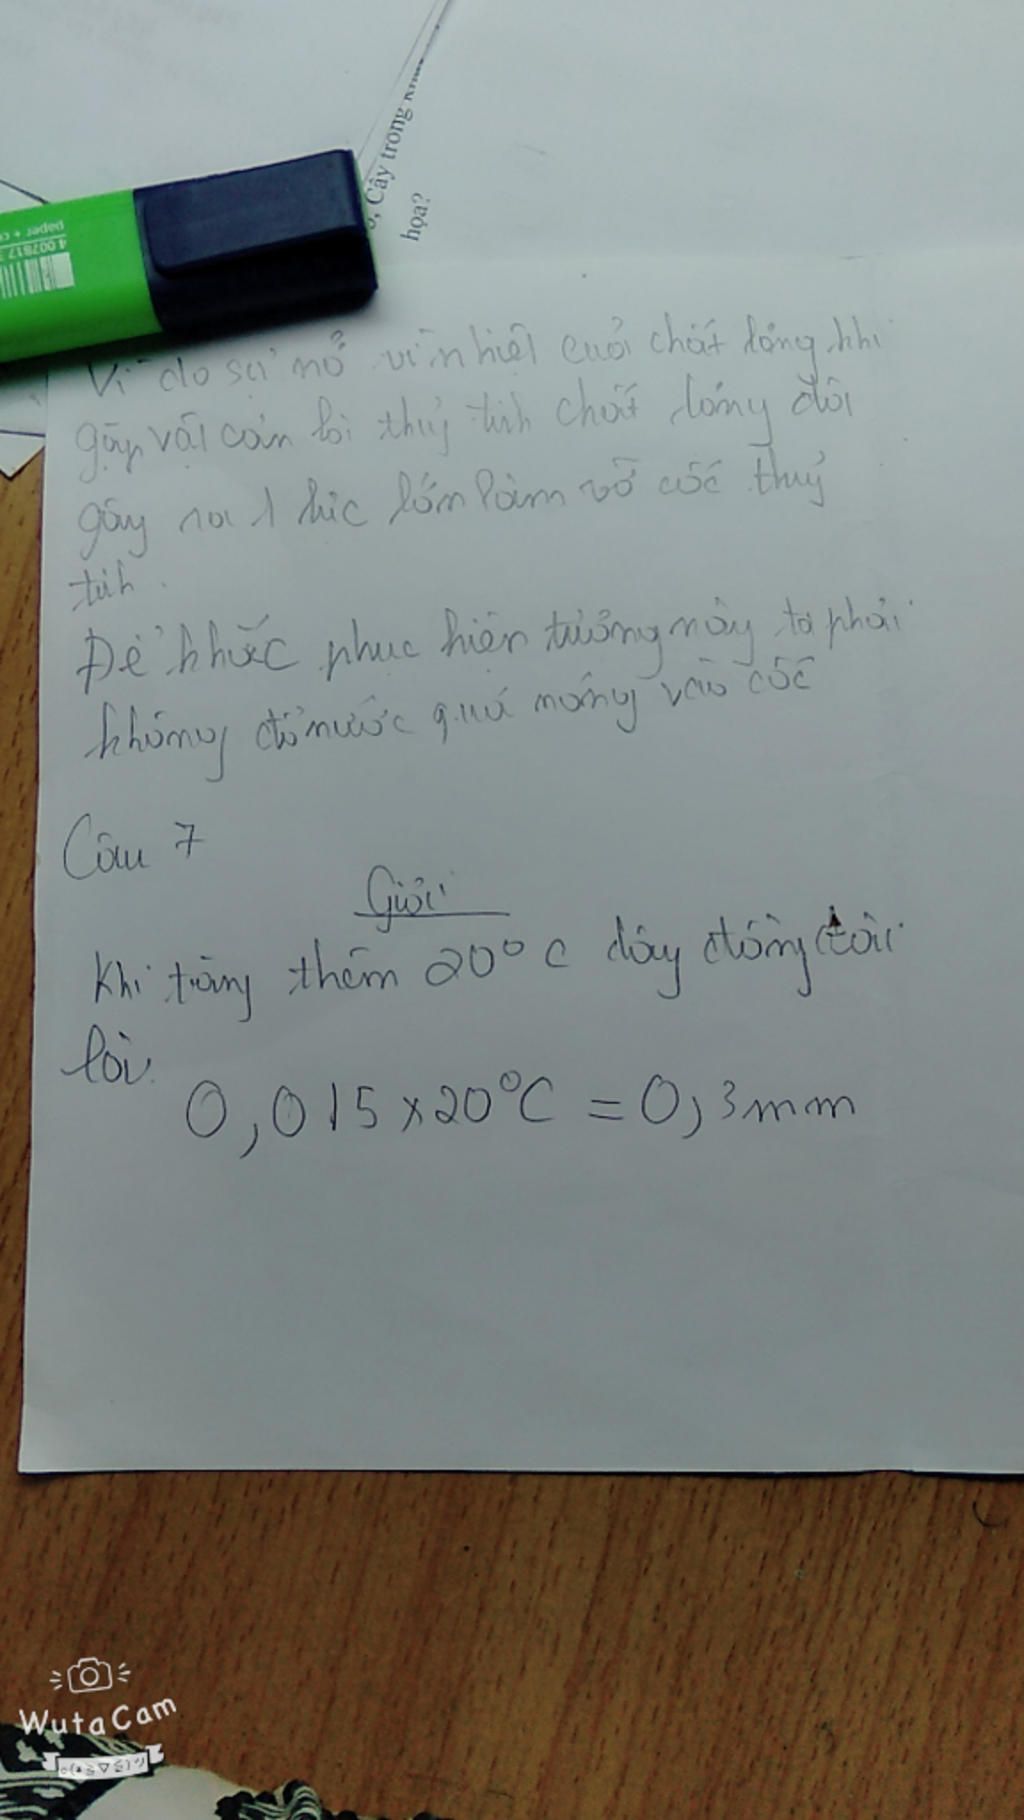 , Cây trong
họa?
paper + c
4 007817
Vì do sự nở vì nhiệt cuỏi chất lỏng khi
gặp vật cản lòi thuỷ tinh chất lỏng đõi
gây ra 1 lực lớn làm vỡ cốc thuỷ
tinh.
Để khắc phục hiện tượng này ta phải
không đổ nước quá nóng vào cốc
Câu 7
Giải
Khi tăng thêm 20°C dây đồng dài
lòi.
0,015 x 20°C = 0,3mm
WutaCam